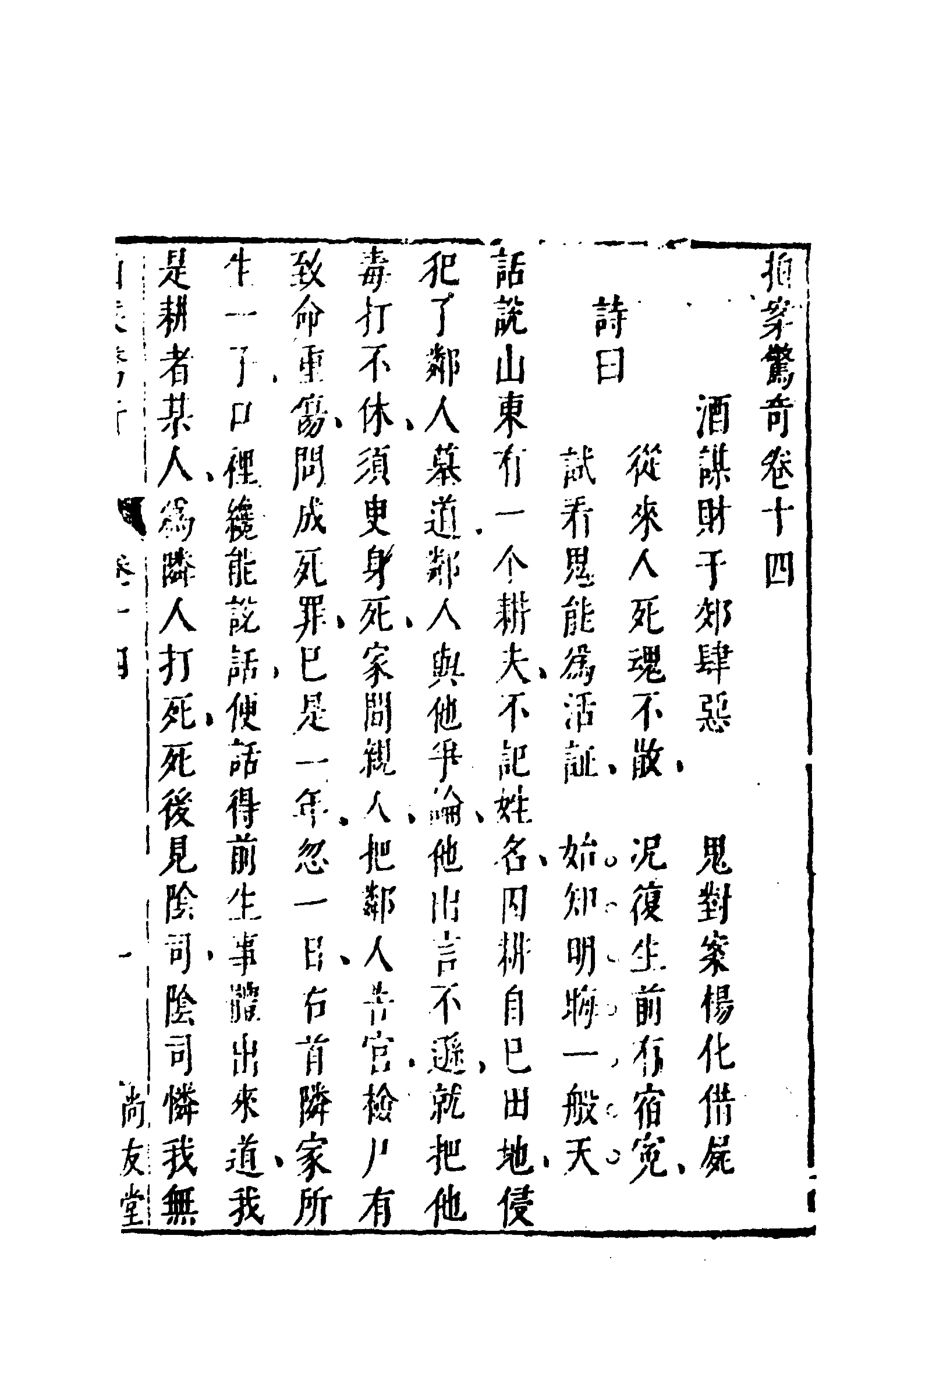 拍案驚奇卷十四
酒謀財于郊肆惡　鬼對案楊化借屍
詩曰
從來人死魂不散、況復生前有宿寃、
試看鬼能爲活証、始知明晦一般天
話說山東有一个耕夫、不記姓名、因耕自己田地、侵
犯了鄰人墓道、鄰人與他爭論、他出言不遜、就把他
毒打不休、須臾身死、家間親人、把鄰人告官、檢尸有
致命重傷、問成死罪、已是一年、忽一日、右首隣家所
生一子、口裡纔能說話、便話得前生事體出來道、我
是耕者某人、爲隣人打死、死後見陰司、陰司憐我無
卷十四
一
尚友堂